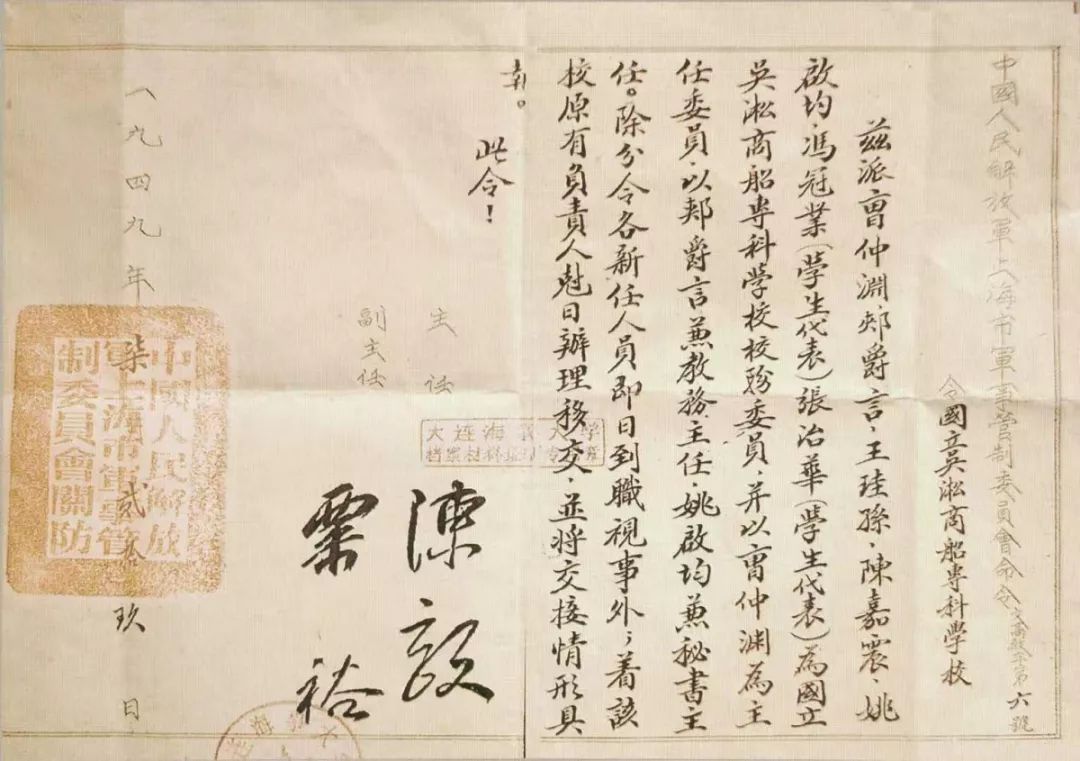 中國人民解放軍上海市軍事管制委員會命令 文高教字第六號
令國立吳淞商船專科學校
茲派曹仲淵、郟爵言、王珪孫、陳嘉震、姚
啟均、馮冠業(學生代表)張治華(學生代表)為國立
吳淞商船專科學校校務委員，并以曹仲淵為主
任委員，以郟爵言兼教務主任，姚啟均兼秘書主
任。除分令各新任人員即日到職視事外，着該
校原有負責人尅日辦理移交，並將交接情形具
報。
此令！
主任
陳毅
副主任
粟裕
一九四九年柒月貳拾玖日
中國人民解放
軍上海市軍事管
制委員會關防
大连海事大学
档案材料